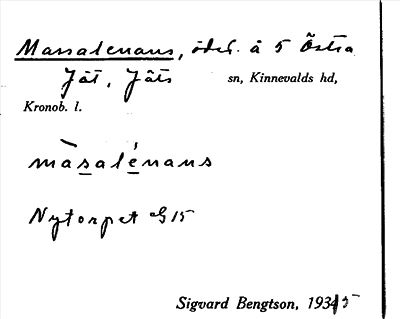 Massalenans, ödet. å 5 Östra
Jät, Jäts sn, Kinnevalds hd,
Kronob. l.
màsalénans
Nytorpet 15
Sigvard Bengtson, 1935